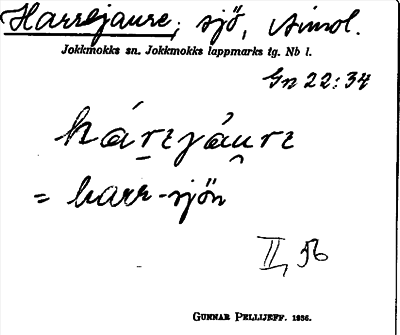 Harrejaure, sjö,
Jokkmokks sn. Jokkmokks lappmarks tg. Nb l.
Gn 22:34
hárrejáu̯re
= harr-sjön
II, 56
GUNNAR PELLIJEFF. 1956.